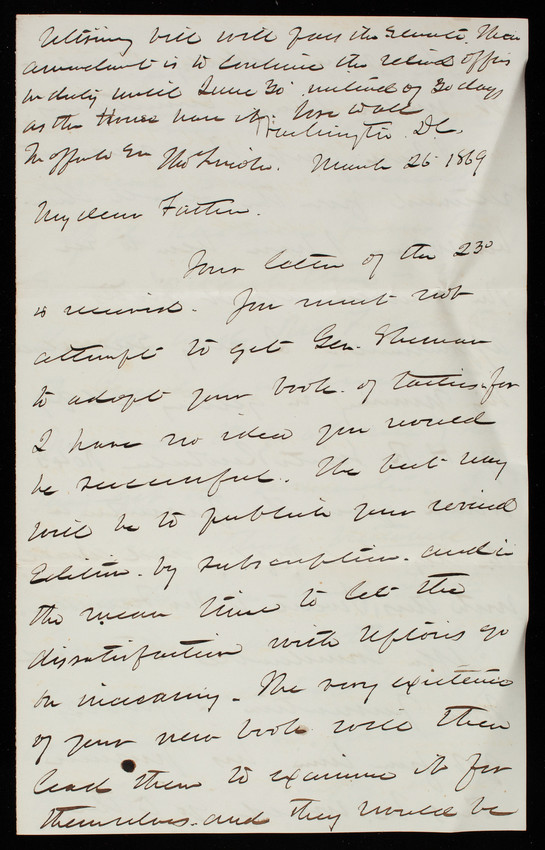 retiring bill will pass the Senate. The
amendment is to continue the retired offrs
on duty until June 30 instead of 30 days
as the House have it.
Washington D.C.
Thos Lincoln. March 26 1869
My dear Father.
Your letter of the 23d
is received. You must not
attempt to get Gen. Sherman
to adopt your book of tactics. for
I have no idea you would
be successful. The best way
will be to publish your revised
Edition. by subscription. and in
the mean time to let the
dissatisfaction with Uptons go
on increasing. The very existence
of your new book will then
lead them to examine it for
themselves. and they would be